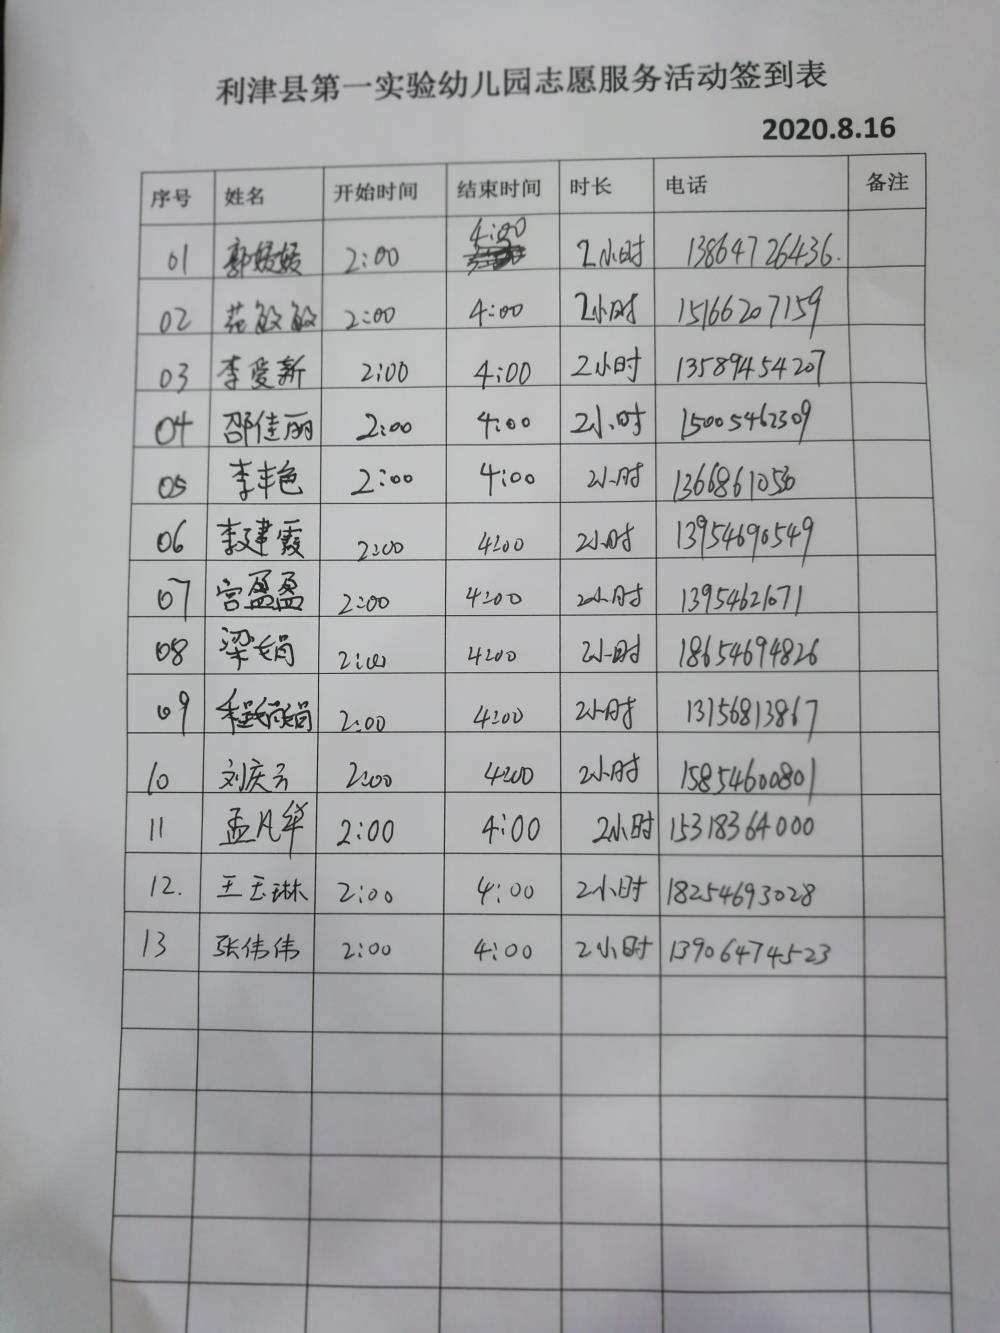 利津县第一实验幼儿园志愿服务活动签到表
2020.8.16
序号 姓名 开始时间 结束时间 时长 电话 备注
01 郭媛媛 2:00 4:00 2小时 13864726436.
02 范敏敏 2:00 4:00 2小时 15166207159
03 李爱新 2:00 4:00 2小时 13589454207
04 邵佳丽 2:00 4:00 2小时 15005462309
05 李丰色 2:00 4:00 2小时
06 李建霞 2:00 4:00 2小时 13954690549
07 宫盈盈 2:00 4:00 2小时 13954621071
08 梁娟 2:00 4:00 2小时 18654694826
09 程娟娟 2:00 4:00 2小时 13156813867
10 刘庆云 2:00 4:00 2小时 15854600801
11 孟凡华 2:00 4:00 2小时 15318364000
12. 王玉琳 2:00 4:00 2小时 18254693028
13 张伟伟 2:00 4:00 2小时 13906474523